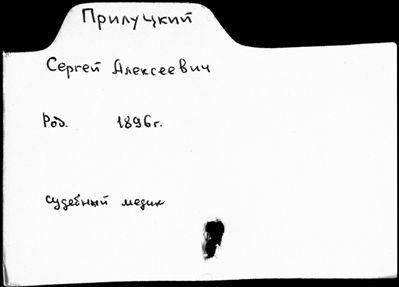 Прилуцкий
Сергей Алексеевич
Род. 1896г.
судебный медик